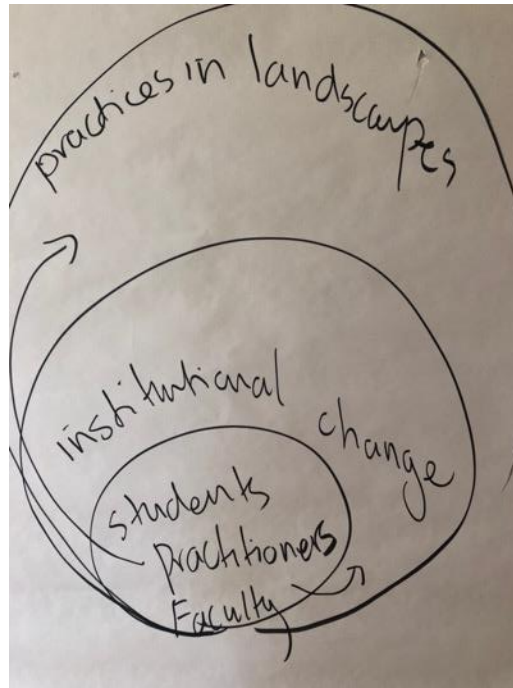 practices in landscapes
institutional change
students
practitioners
Faculty